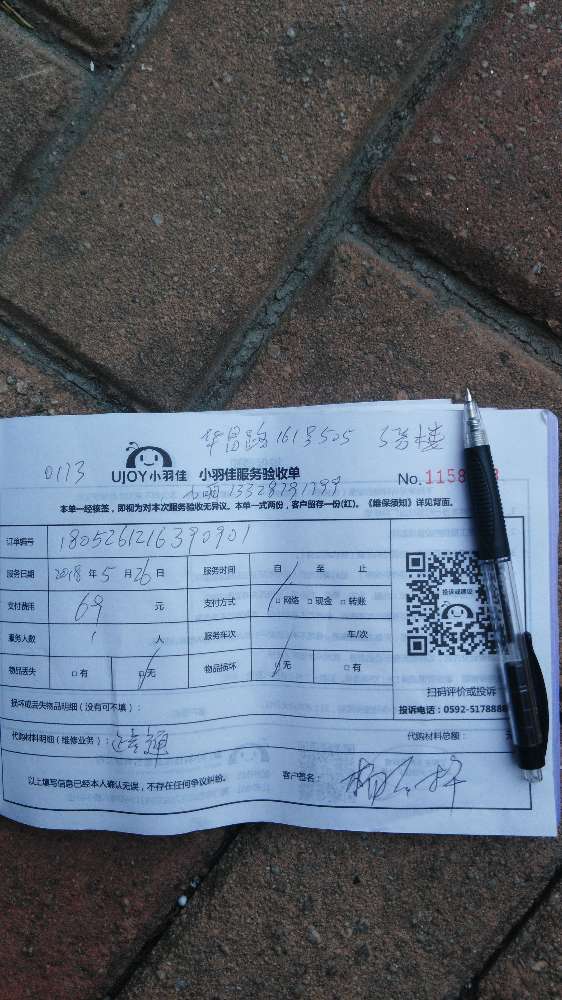 华昌路161号505 5号楼
0173
UJOY小羽佳 小羽佳服务验收单 No.1158
13328791799
本单一经核签，即视为对本次服务验收无异议。本单一式两份，客户留存一份(红)。《维保须知》详见背面。
订单编号 1805261216390901
服务日期 2018 年 5 月 26 日 服务时间 自 至 止
支付费用 69 元 支付方式 □网络 □现金 □转账
服务人数 1 人 服务车次 车/次
物品丢失 □有 □无 物品损坏 □无 □有
投诉或建议
扫码评价或投诉
投诉电话：0592-5178888
损坏或丢失物品明细（没有可不填）：
代购材料明细（维修业务）： 代购材料总额：
以上填写信息已经本人确认无误，不存在任何争议纠纷。 客户签名：